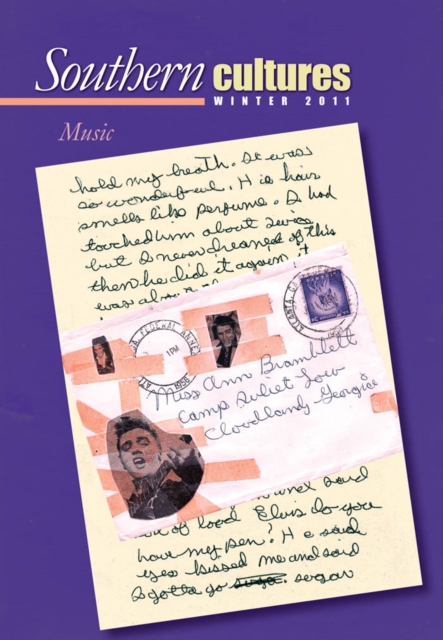 Southern cultures
WINTER 2011
Music
hold my breath. It was
so wonderful. H is hair
smells like perfume. I had
touched him about twice
but I never dreamed of this
then he did it again it
was
FEDERAL ANNEX
1PM
1956
ATLANTA, G
1956
Miss Ann Bramblett
Camp Juliet Low
Cloudland, Georgia
said
of food Elvis do you
have my pen? H e said
yes kissed me and said
I gotta go sugar